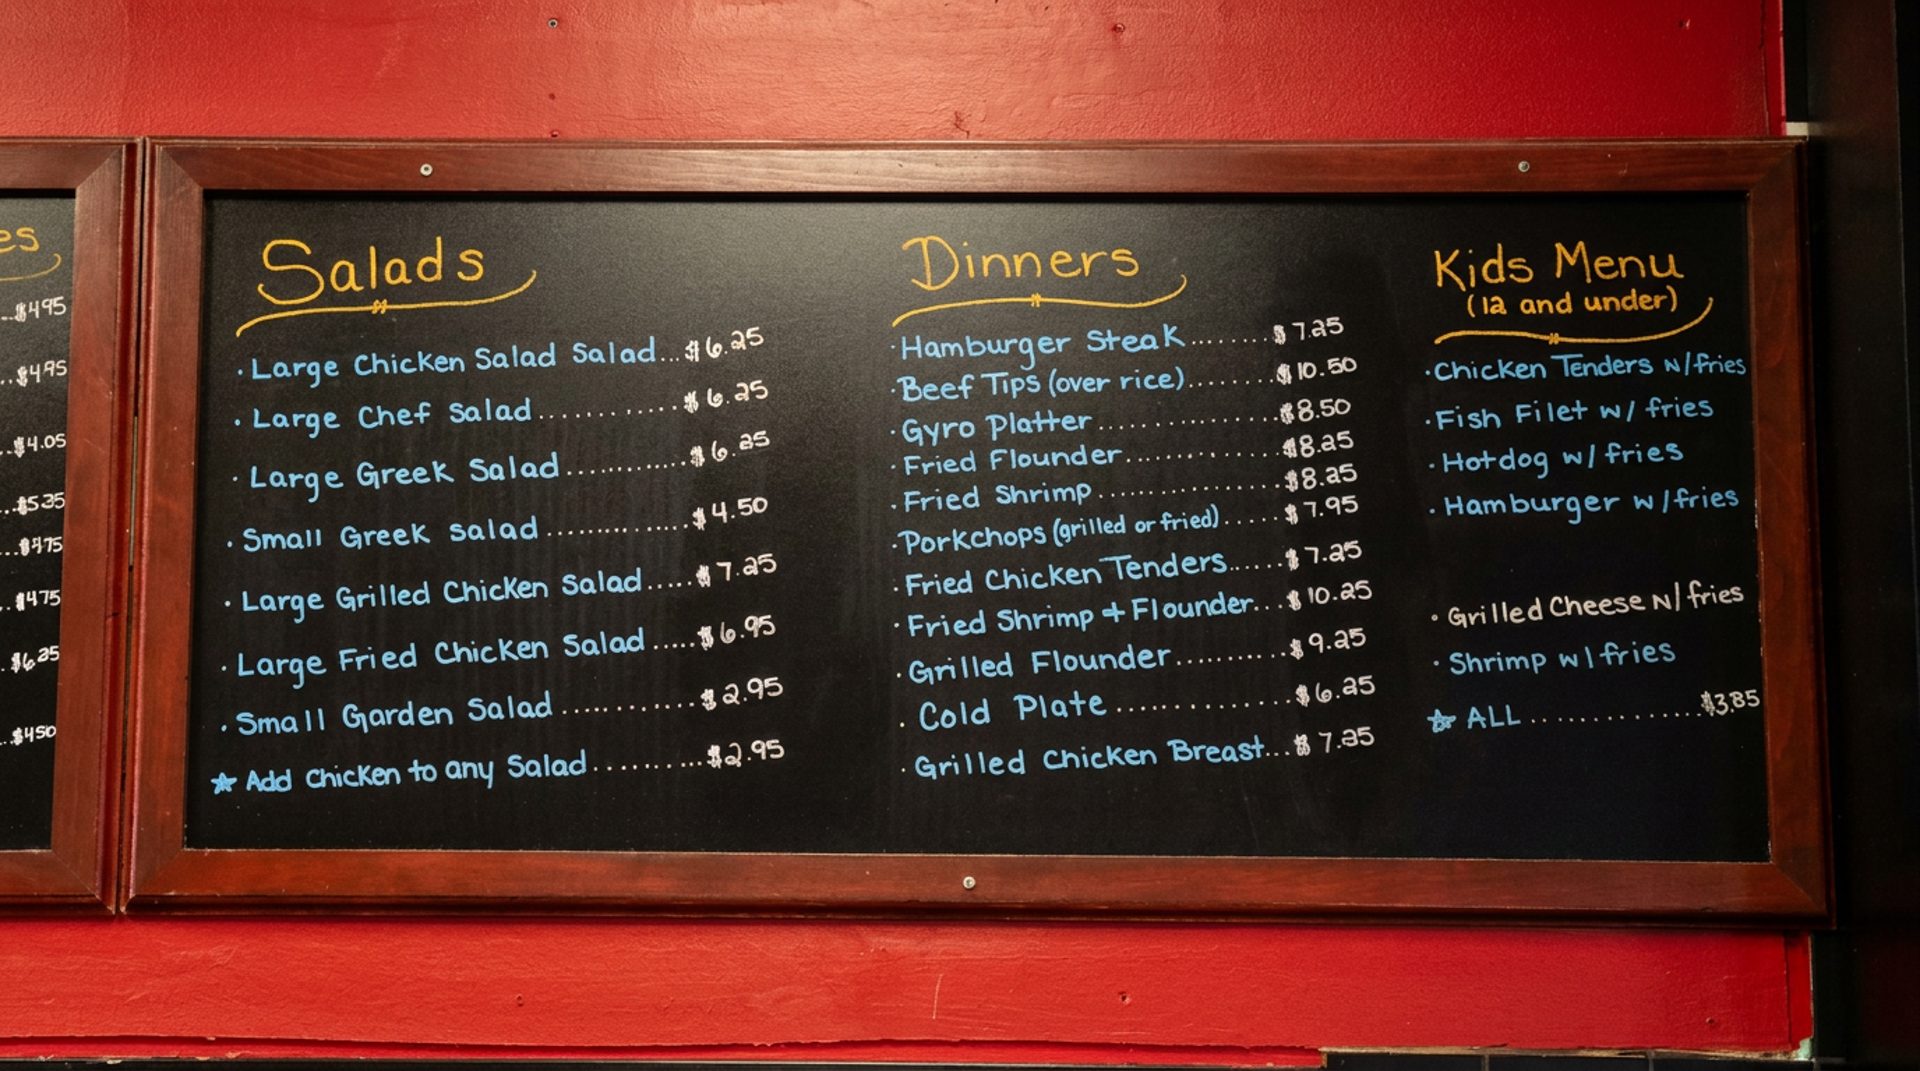 es
...$4.95
...$4.95
...$4.05
...$5.25
...$4.75
..$4.75
.$6.25
..$4.50
Salads
· Large Chicken Salad Salad...$6.25
· Large Chef Salad............$6.25
· Large Greek Salad............$6.25
· Small Greek Salad.............$4.50
· Large Grilled Chicken Salad.....$7.25
· Large Fried Chicken Salad.....$6.95
· Small Garden Salad............$2.95
☆ Add Chicken to any Salad..........$2.95
Dinners
· Hamburger Steak.......$7.25
· Beef Tips (over rice)........$10.50
· Gyro Platter................$8.50
· Fried Flounder..............$8.25
· Fried Shrimp.................$8.25
· Porkchops (grilled or fried).....$7.95
· Fried Chicken Tenders......$7.25
· Fried Shrimp + Flounder...$10.25
· Grilled Flounder...........$9.25
· Cold Plate................$6.25
· Grilled Chicken Breast...$7.25
Kids Menu
(12 and under)
· Chicken Tenders w/fries
· Fish Filet w/ fries
· Hotdog w/ fries
· Hamburger w/fries
· Grilled Cheese w/fries
· Shrimp w/fries
☆ ALL..............$3.85